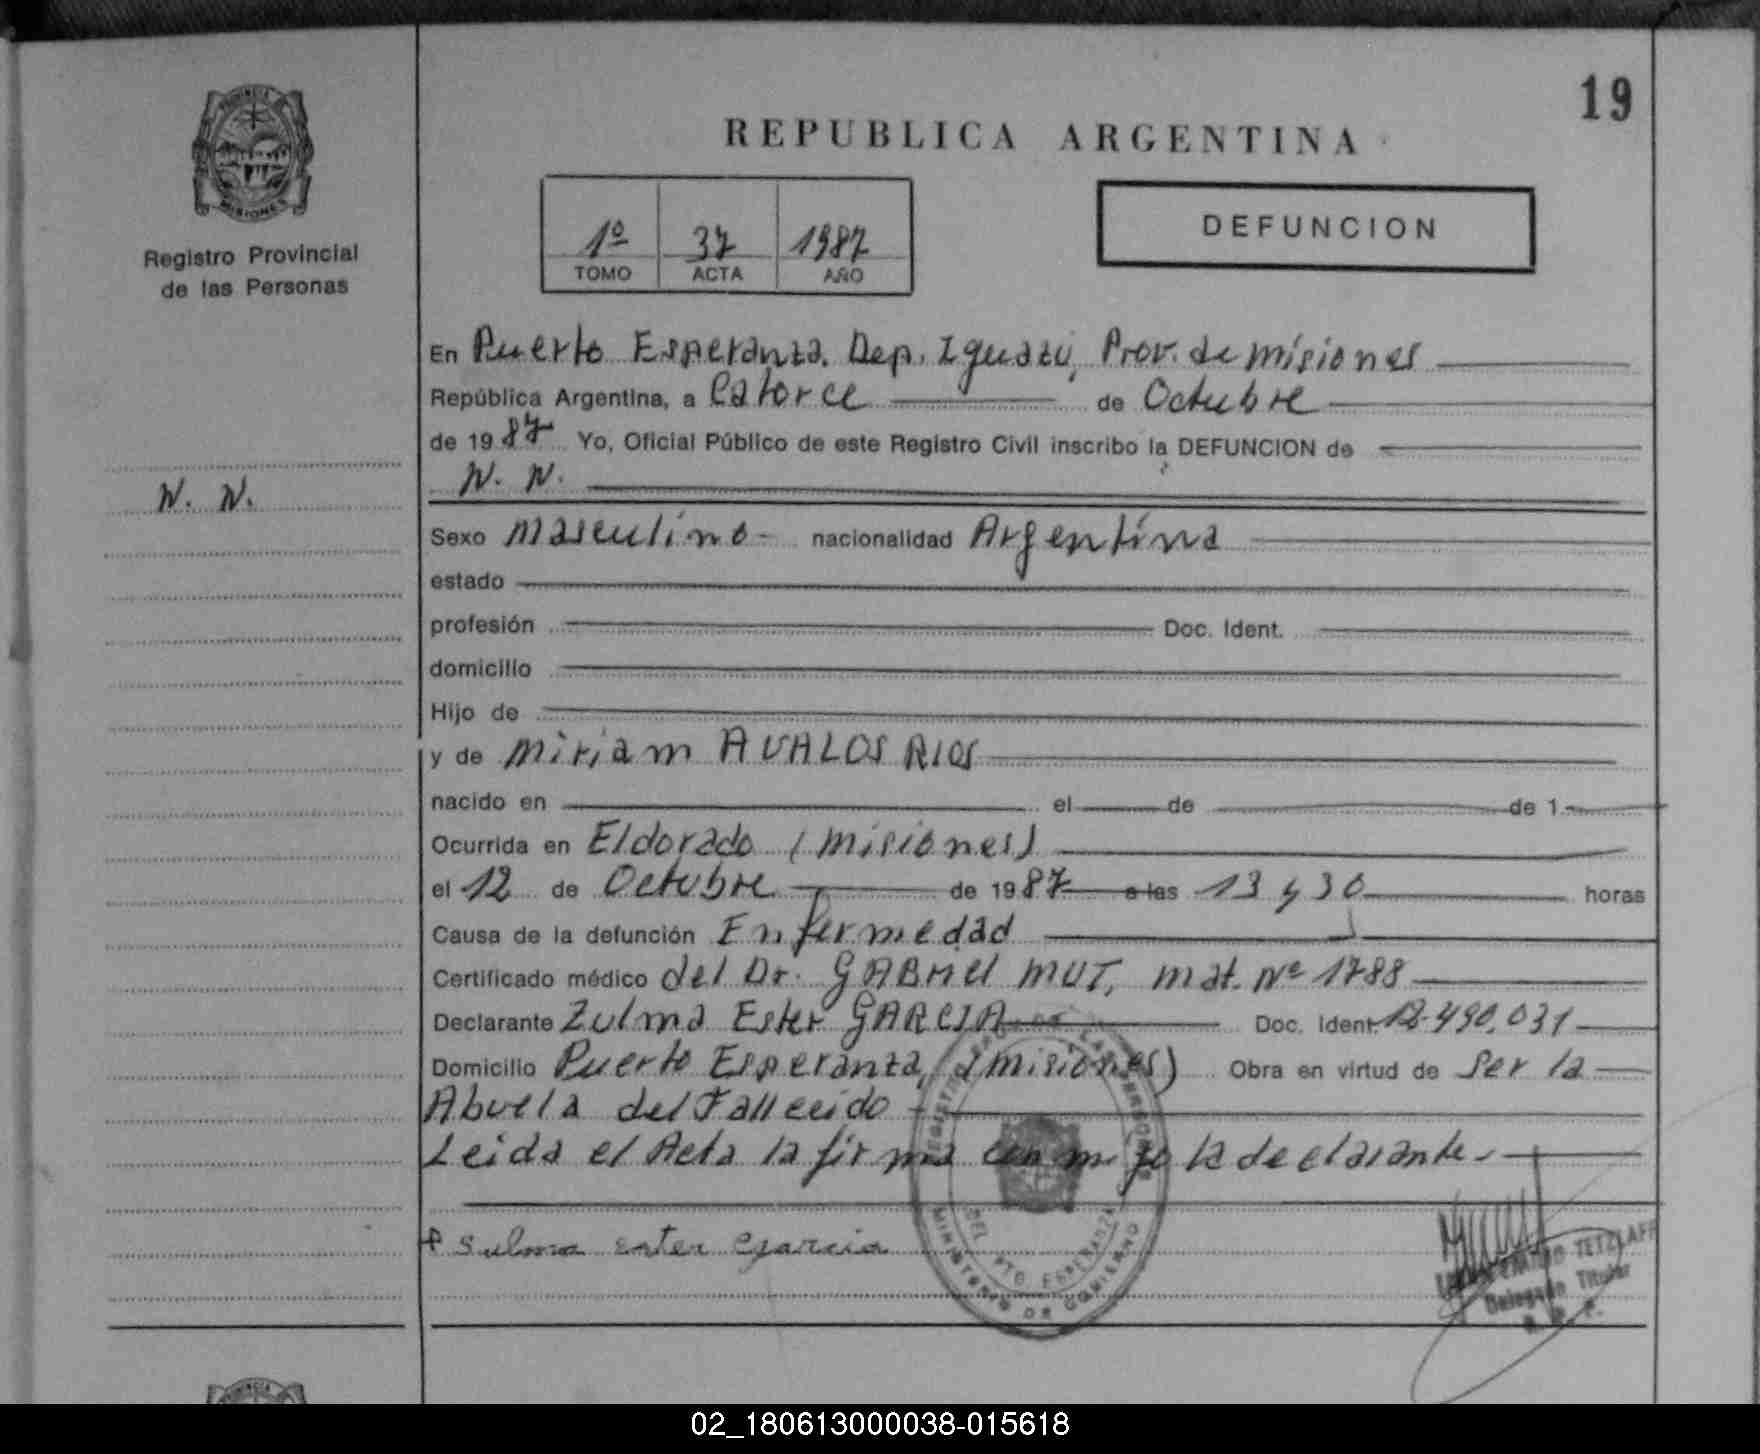 19
PROVINCIA DE
MISIONES
Registro Provincial
de las Personas
REPUBLICA ARGENTINA
1º 37 1987
TOMO ACTA AÑO
DEFUNCION
En Puerto Esperanza. Dep. Iguazú, Prov. de misiones
República Argentina, a Catorce de Octubre
de 1987 Yo, Oficial Público de este Registro Civil inscribo la DEFUNCION de
N. N.
N. N.
Sexo masculino - nacionalidad Argentina
estado
profesión Doc. Ident.
domicilio
Hijo de
y de Miriam AVALOS RIOS
nacido en el de de 1
Ocurrida en Eldorado (misiones)
el 12 de Octubre de 1987 a las 13 y 30 horas
Causa de la defunción Enfermedad
Certificado médico del Dr. GABRIEL MUT, mat. Nº 1788
Declarante Zulma Ester GARCIA Doc. Ident. 12.490.031
Domicilio Puerto Esperanza, (misiones) Obra en virtud de Ser la
Abuela del Fallecido
Leida el Acta la firma conmigo la declarante.
sulma ester Garcia
DEL PTO ESPERANZA
MINISTERIO DE GOBIERNO
TETZLAFF
Delegado Titular
PROVINCIA DE
02_180613000038-015618